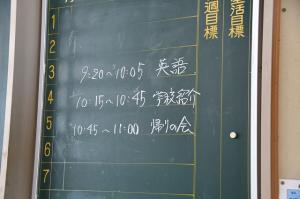 週目標
生活目標
1
2
3
9:20～10:05 英語
4
10:15～10:45 学校紹介
5
10:45～11:00 帰りの会
6
7